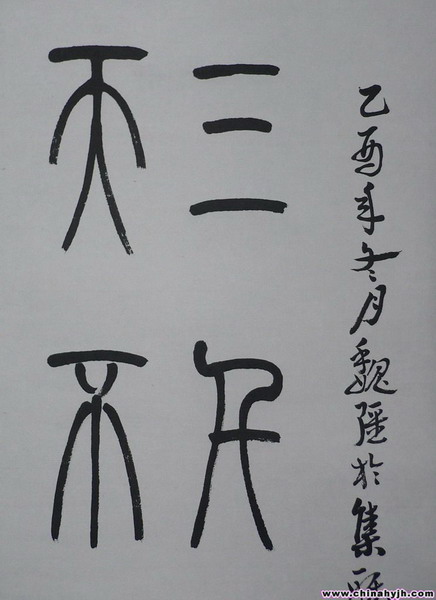 乙酉年冬月魏於集
三
天不
www.chinahyjh.com